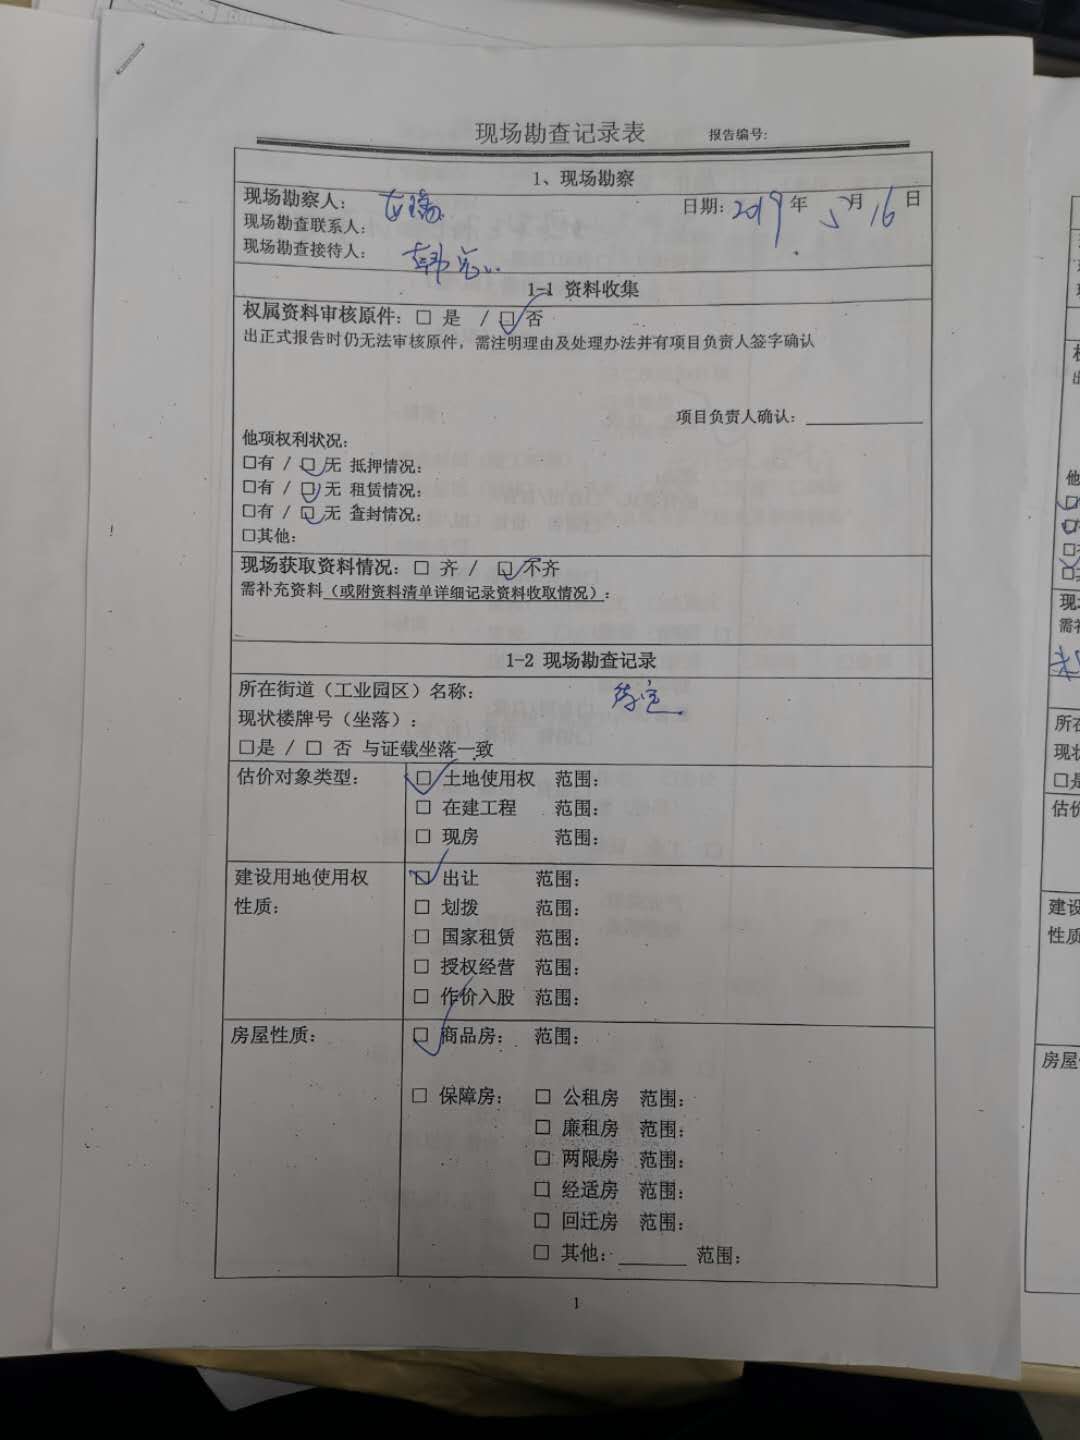 现场勘查记录表 报告编号:
1、现场勘察
现场勘察人: 日期: 2019年 5月 16日
现场勘查联系人:
现场勘查接待人: 韩总
1-1 资料收集
权属资料审核原件: □ 是 / □ 否
出正式报告时仍无法审核原件，需注明理由及处理办法并有项目负责人签字确认
项目负责人确认:
他项权利状况:
□有 / □ 无 抵押情况:
□有 / □ 无 租赁情况:
□有 / □ 无 查封情况:
□其他:
现场获取资料情况: □ 齐 / □ 不齐
需补充资料(或附资料清单详细记录资料收取情况):
1-2 现场勘查记录
所在街道(工业园区)名称:
现状楼牌号(坐落):
□是 / □ 否 与证载坐落一致
估价对象类型: □ 土地使用权 范围:
□ 在建工程 范围:
□ 现房 范围:
建设用地使用权 □ 出让 范围:
性质: □ 划拨 范围:
□ 国家租赁 范围:
□ 授权经营 范围:
□ 作价入股 范围:
房屋性质: □ 商品房: 范围:
□ 保障房: □ 公租房 范围:
□ 廉租房 范围:
□ 两限房 范围:
□ 经适房 范围:
□ 回迁房 范围:
□ 其他: 范围:
1